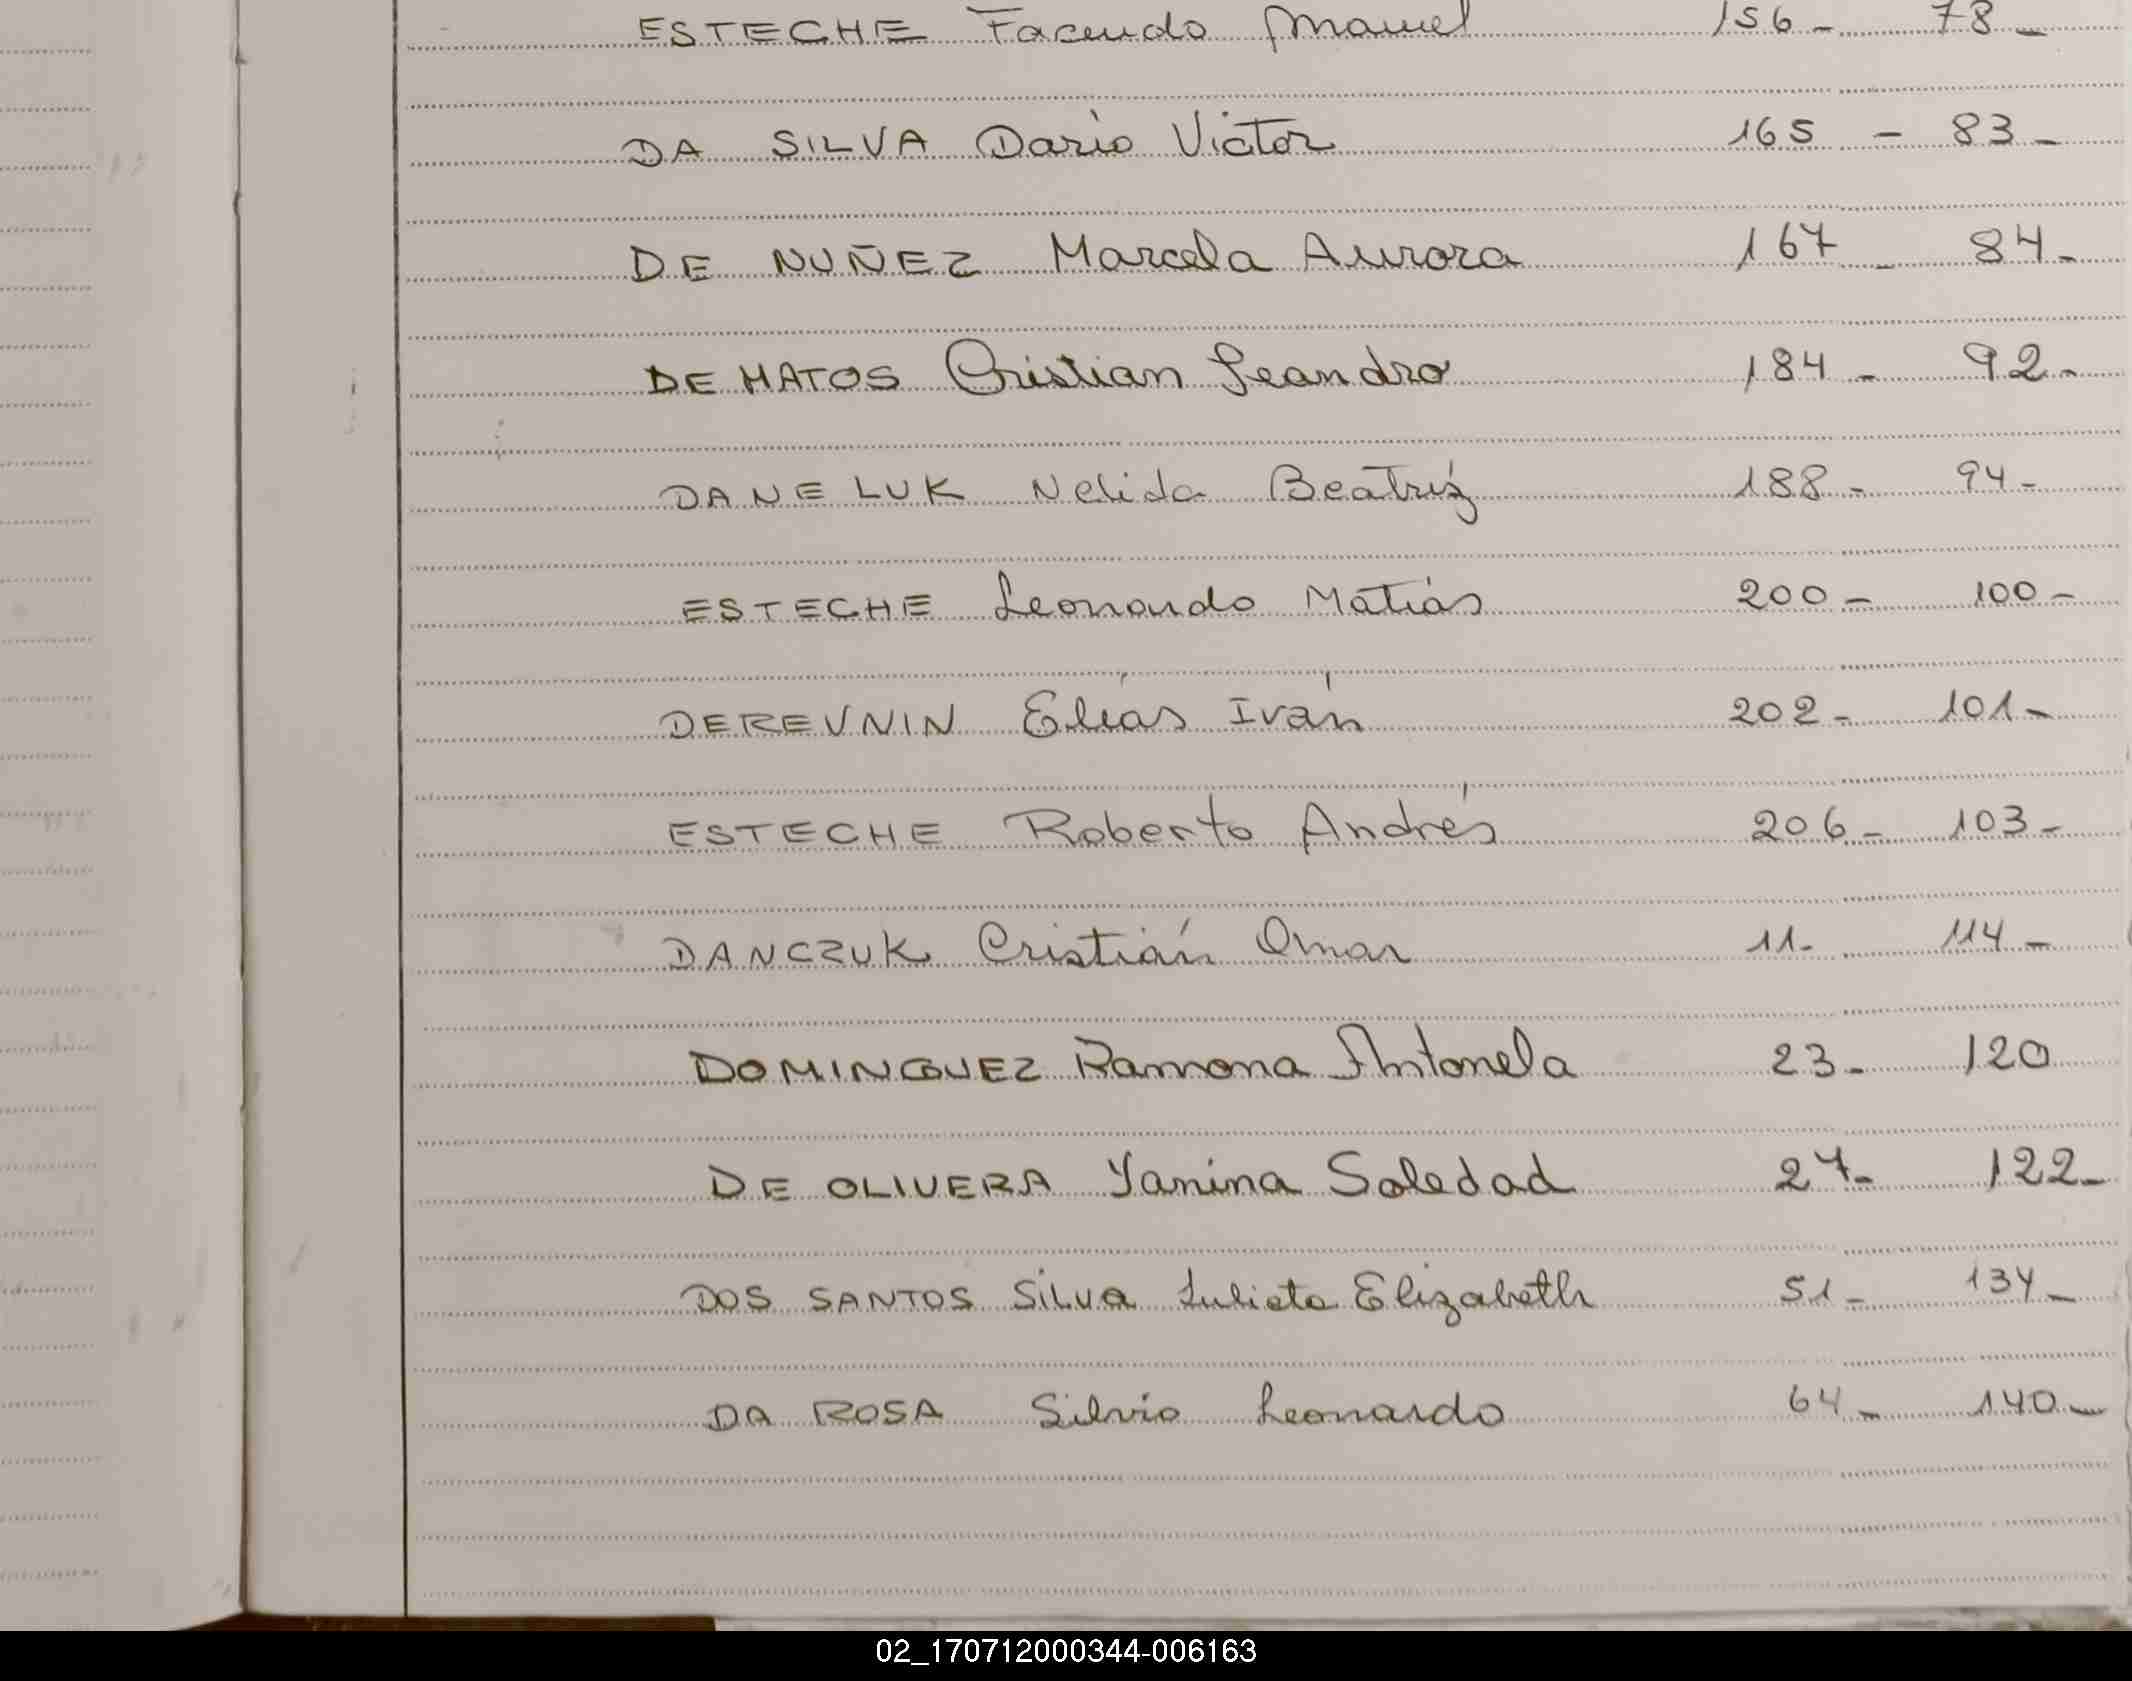 ESTECHE Facundo Manuel 156- 78-
DA SILVA Dario Victor 165 - 83-
DE NUÑEZ Marcela Aurora 167- 84-
DE MATOS Cristian Leandro 184- 92-
DANELUK Nelida Beatríz 188- 94-
ESTECHE Leonardo Matías 200- 100-
DEREVNIN Elías Iván 202- 101-
ESTECHE Roberto Andrés 206- 103-
DANCZUK Cristián Omar 11- 114-
DOMINGUEZ Ramona Antonela 23- 120
DE OLIVERA Yanina Soledad 27- 122-
DOS SANTOS SILVA Julieta Elizabeth 51- 134-
DA ROSA Silvio Leonardo 64- 140-
02_170712000344-006163